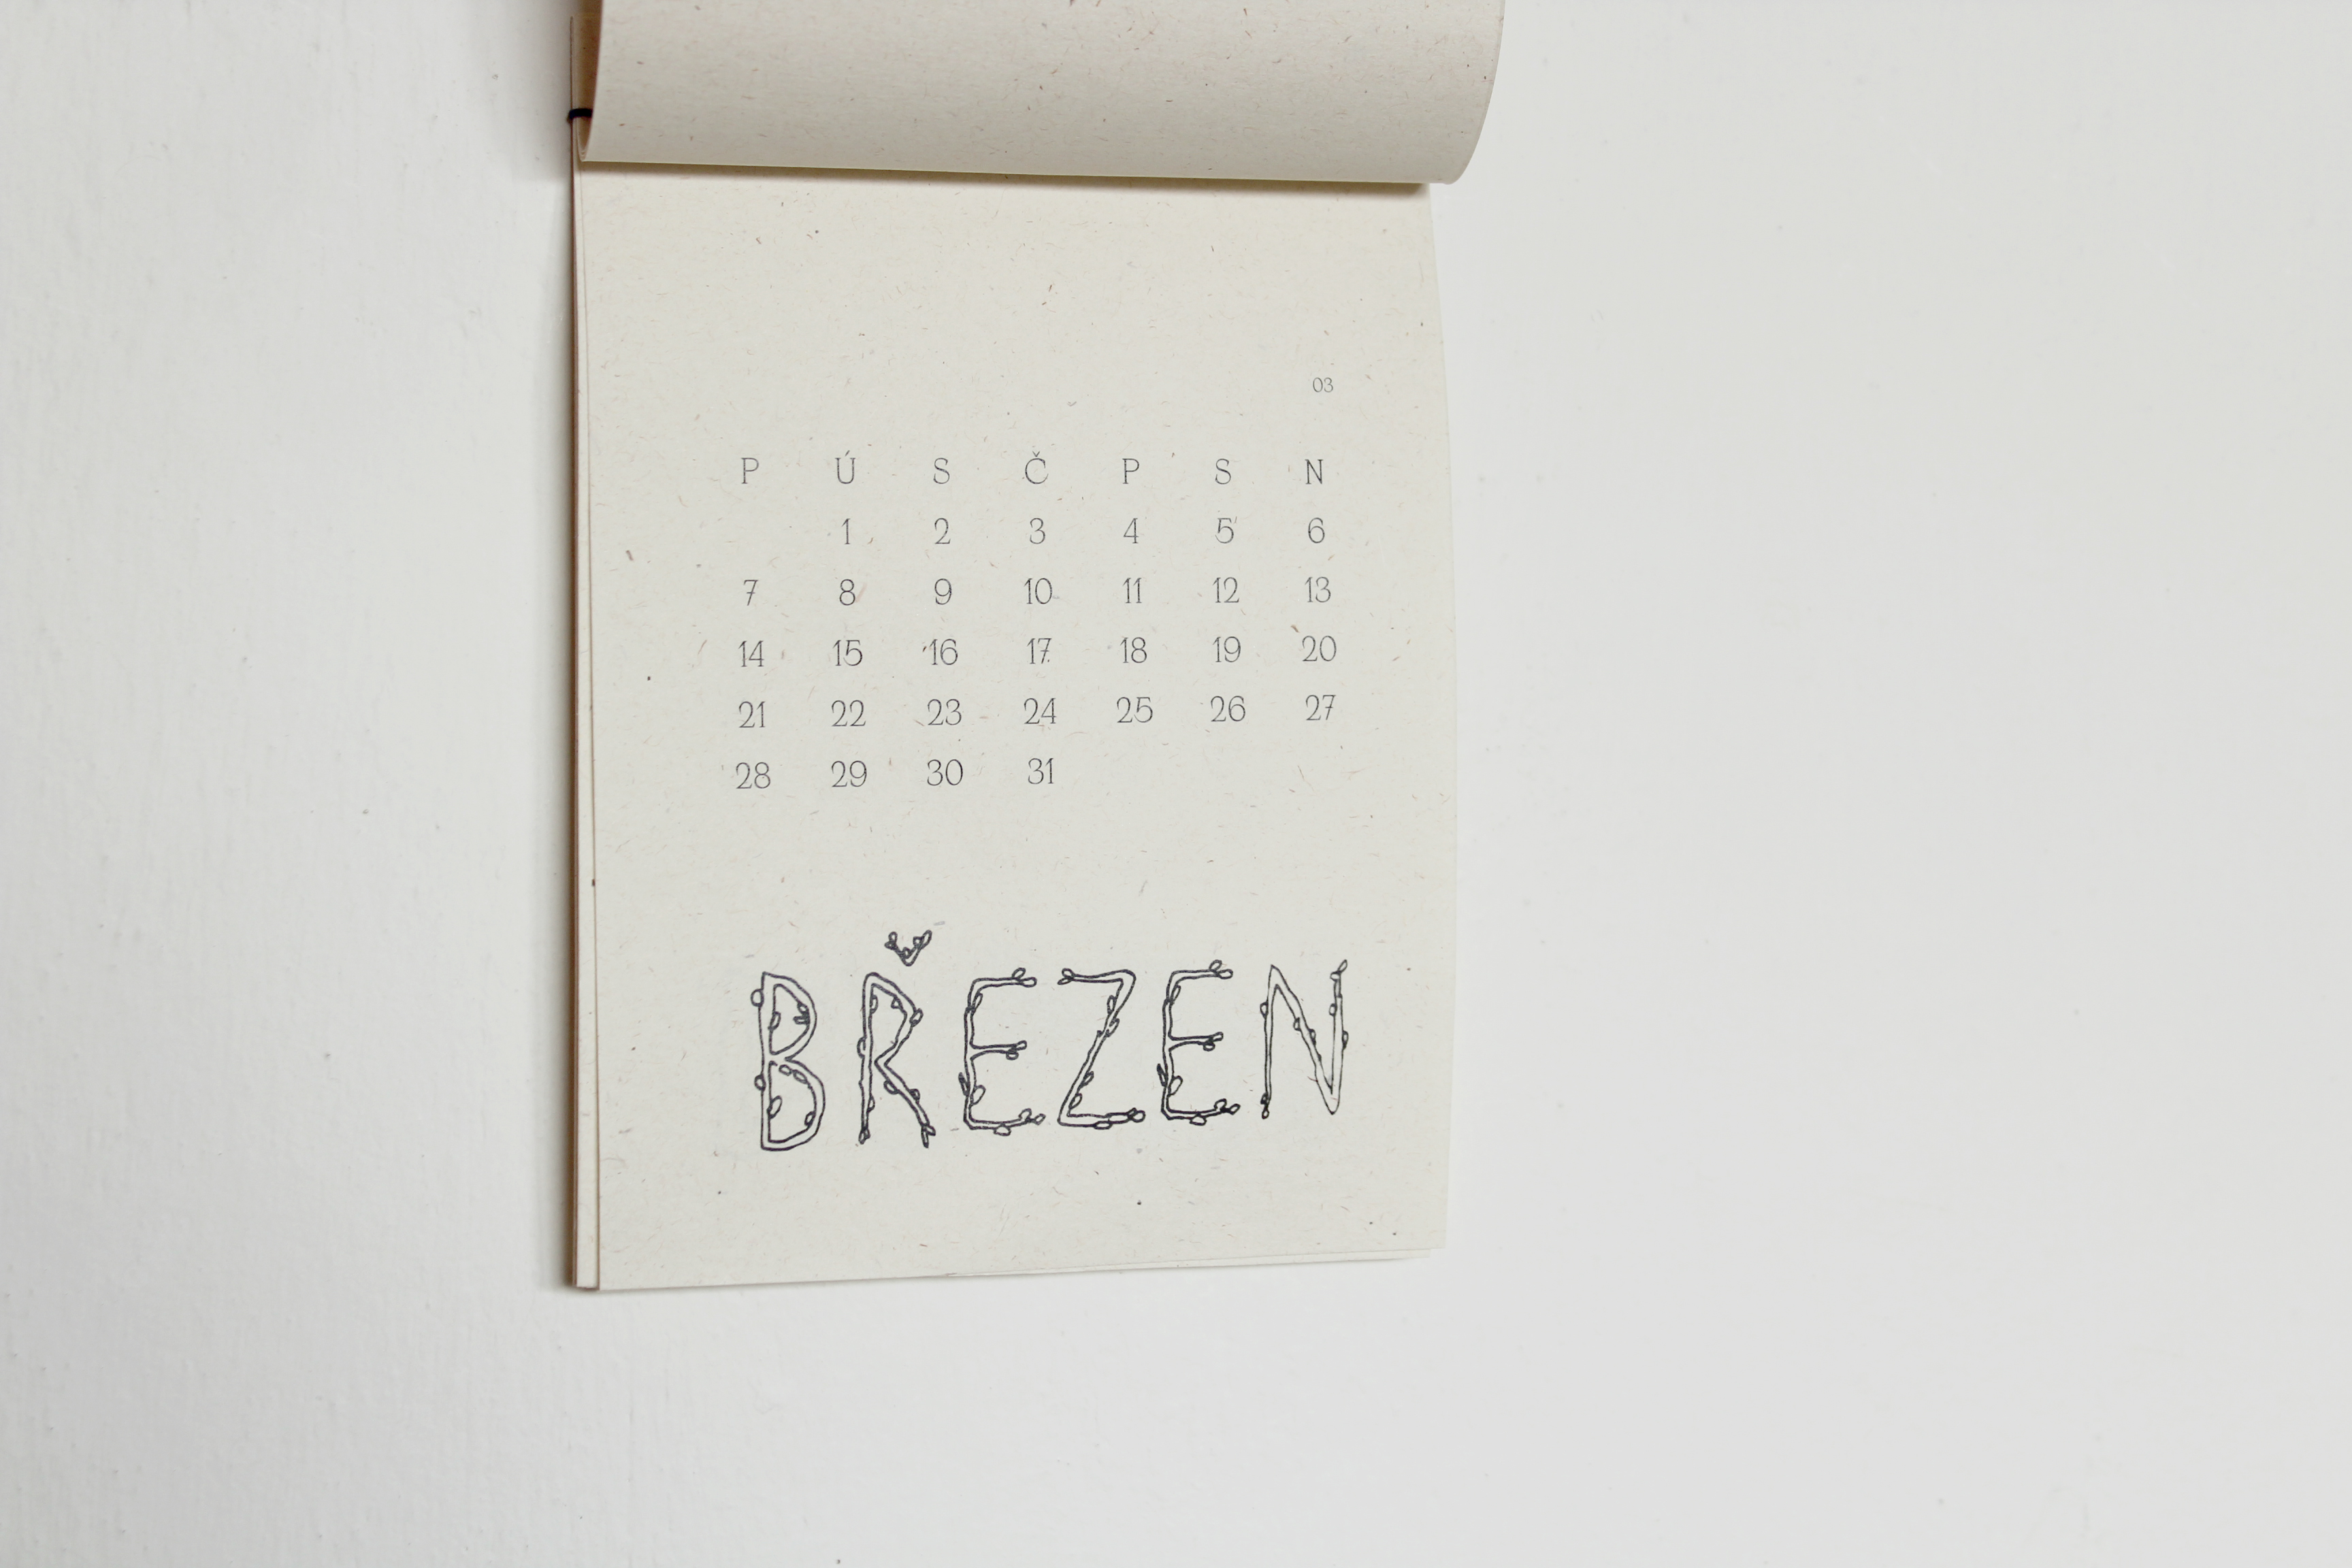 03
P Ú S Č P S N
1 2 3 4 5 6
7 8 9 10 11 12 13
14 15 16 17 18 19 20
21 22 23 24 25 26 27
28 29 30 31
BŘEZEN